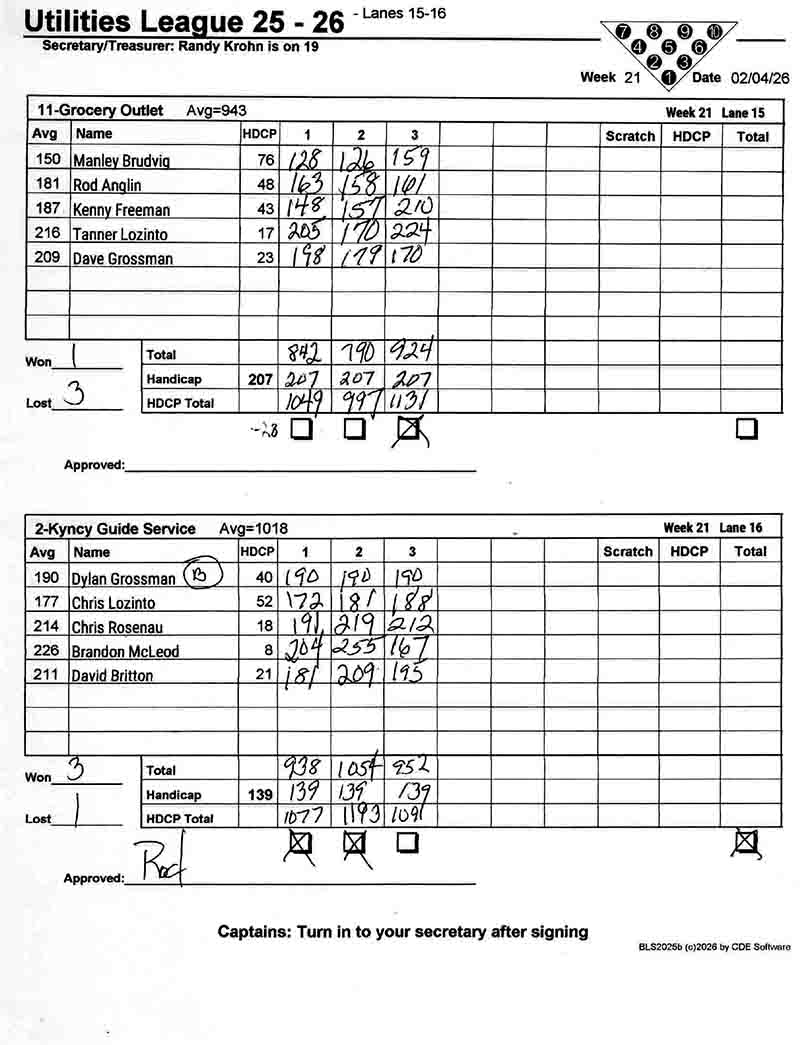 Utilities League 25 - 26 - Lanes 15-16
Secretary/Treasurer: Randy Krohn is on 19
7 8 9 10
4 5 6
2 3
1
Week 21 Date 02/04/26
11-Grocery Outlet Avg=943 Week 21 Lane 15
Avg Name HDCP 1 2 3 Scratch HDCP Total
150 Manley Brudvig 76 128 126 159
181 Rod Anglin 48 163 158 161
187 Kenny Freeman 43 148 157 210
216 Tanner Lozinto 17 205 170 224
209 Dave Grossman 23 198 179 170
Won 1 Total 842 790 924
Handicap 207 207 207 207
Lost 3 HDCP Total 1049 997 1131
-28
Approved:
2-Kyncy Guide Service Avg=1018 Week 21 Lane 16
Avg Name HDCP 1 2 3 Scratch HDCP Total
190 Dylan Grossman B 40 190 190 190
177 Chris Lozinto 52 172 181 188
214 Chris Rosenau 18 191 219 212
226 Brandon McLeod 8 204 255 167
211 David Britton 21 181 209 195
Won 3 Total 938 1054 952
Handicap 139 139 139 139
Lost 1 HDCP Total 1077 1193 1091
Approved: Rod
Captains: Turn in to your secretary after signing
BLS2025b (c)2026 by CDE Software